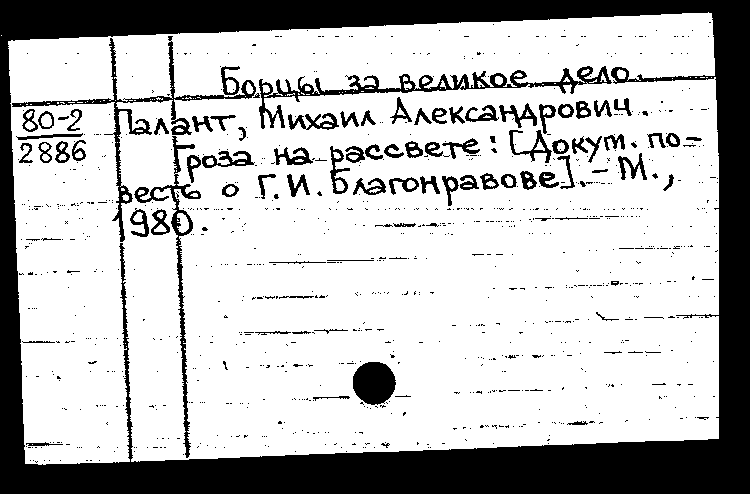 Борцы за великое дело.
80-2 Палант, Михаил Александрович.
2886 Гроза на рассвете: [Докум. по-
весть о Г.И. Благонравове]. - М.,
1980.